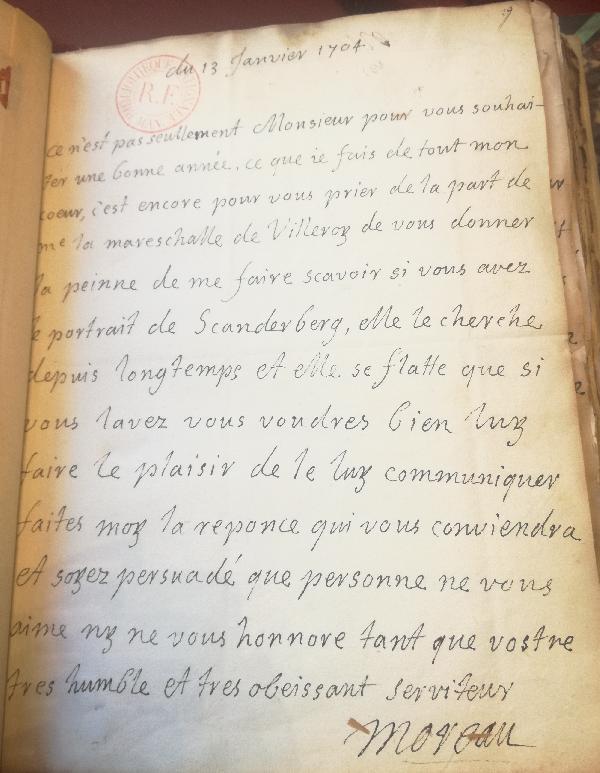 19
du 13 Janvier 1704
BIBLIOTHEQUE NATIONALE MAN.
R.F.
ce n'est pas seullement Monsieur pour vous souhai-
ter une bonne année, ce que ie fais de tout mon
coeur, c'est encore pour vous prier de la part de
me la mareschalle de Villeroy de vous donner
la peinne de me faire scavoir si vous avez
le portrait de Scanderberg, elle le cherche
depuis longtemps et elle se flatte que si
vous lavez vous voudres bien luy
faire le plaisir de le luy communiquer
faites moy la reponce qui vous conviendra
et soyez persuadé que personne ne vous
aime ny ne vous honnore tant que vostre
tres humble et tres obeissant serviteur
Moreau